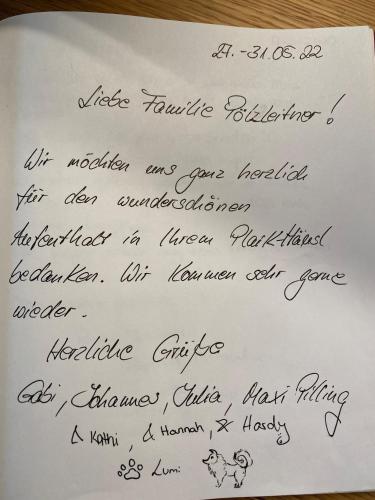 27.-31.05.22
Liebe Familie Pölzleitner!
Wir möchten uns ganz herzlich
für den wunderschönen
Aufenthalt in Ihrem Plaik-Häusl
bedanken. Wir kommen sehr gerne
wieder.
Herzliche Grüße
Gabi, Johannes, Julia, Maxi Pilling
& Kathi, & Hannah, & Hasdy
Lumi